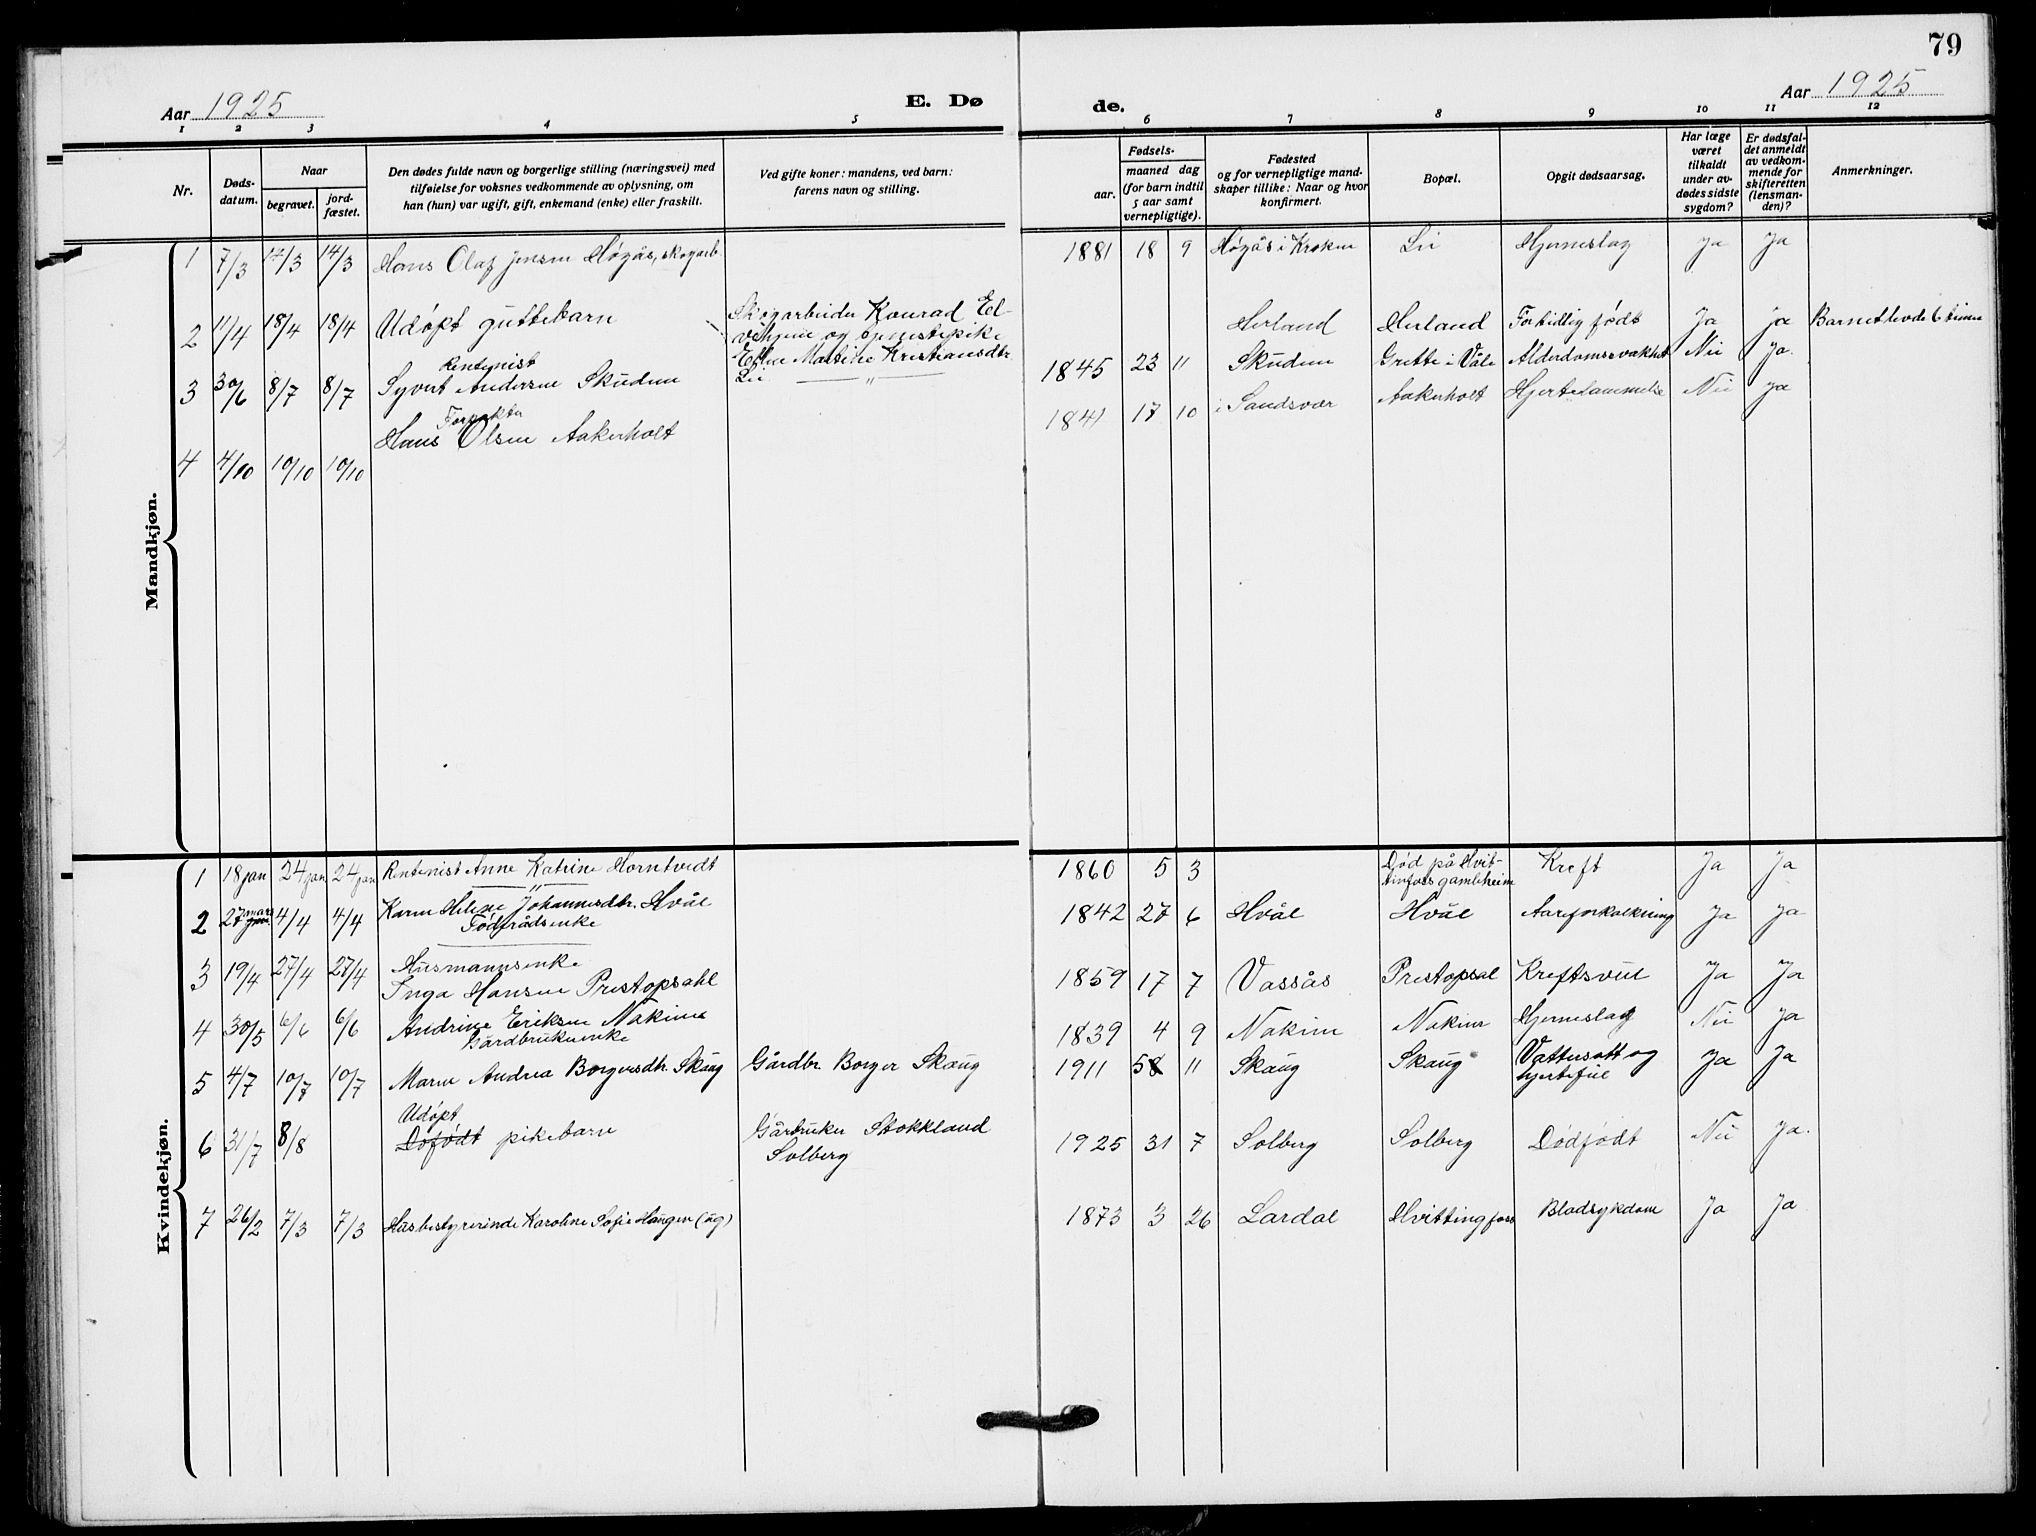 79
Aar 1925
E. Dø
de.
Aar 1925
1 2 3 4 5 6 7 8 9 10 11 12
Nr.
Døds-
datum.
Naar
begravet.
jord-
fæstet.
Den dødes fulde navn og borgerlige stilling (næringsvei) med
tilføielse for voksnes vedkommende av oplysning, om
han (hun) var ugift, gift, enkemand (enke) eller fraskilt.
Ved gifte koner: mandens, ved barn:
farens navn og stilling.
Fødsels-
aar.
maaned dag
(for barn indtil
5 aar samt
vernepligtige).
Fødested
og for vernepligtige mand-
skaper tillike: Naar og hvor
konfirmert.
Bopæl.
Opgit dødsaarsag.
Har læge
været
tilkaldt
under av-
dødes sidste
sygdom?
Er dødsfal-
det anmeldt
av vedkom-
mende for
skifteretten
(lensman-
den)?
Anmerkninger.
Mandkjøn.
1 7/3 17/3 14/3 Hans Olaf Jensen Høgås, skogarb. 1881 18 9 Høgås i Kroken Lii Hjerneslag Ja Ja
2 11/4 18/4 18/4 Udøpt guttebarn Skogarbeider Konrad
og tjenestepike
Martine Kristiansdtr.
Lii
Herland Herland Fortidlig født Ja Ja Barnet levde 6 timer
3 30/6 8/7 8/7 Rentenist
Syvert Andersen Skuden 1845 23 11 Skuden Grette i Våle Alderdomssvakhet Nei Ja.
4 4/10 10/10 10/10 Forpakter
Hans Olsen Aakerholt 1841 17 10 i Sandsvær Aakerholt Hjertelammelse Nei Ja
Kvindekjøn.
1 18 jan 24 jan 24 jan Rentenist Anne Katrine Horntvedt 1860 5 3 Død på Hvit-
tinfoss gamleheim Kreft Ja Ja
2 27 mars 4/4 4/4 Karen Helene Johannesdtr. Hvål
Fødrådsenke 1842 27 6 Hvål Hvål Aareforkalkning Ja Ja
3 19/4 27/4 27/4 Husmannsenke
Inga Hansen Prestopsahl 1859 17 7 Vassås Prestopsal Kreftsvul Ja Ja
4 30/5 6/6 6/6 Andrine Eriksen Nakime
Gårdbrukerenke 1839 4 9 Nakim Nakim Hjerneslag Nei Ja
5 4/7 10/7 10/7 Maren Andrea Borgersdtr. Skaug Gårdbr. Borger Skaug 1911 58 11 Skaug Skaug Vattersott og
hjertefeil Ja Ja
6 31/7 8/8 Udøpt
Døfødt pikebarn Gårbruker Stokkland
Solberg 1925 31 7 Solberg Solberg Dødfødt Nei Ja.
7 26/2 7/3 7/3 Husbestyrerinde Karoline Sofie Haugen (ug) 1873 3 26 Lardal Hvittingfoss Blodsykdom Ja Ja